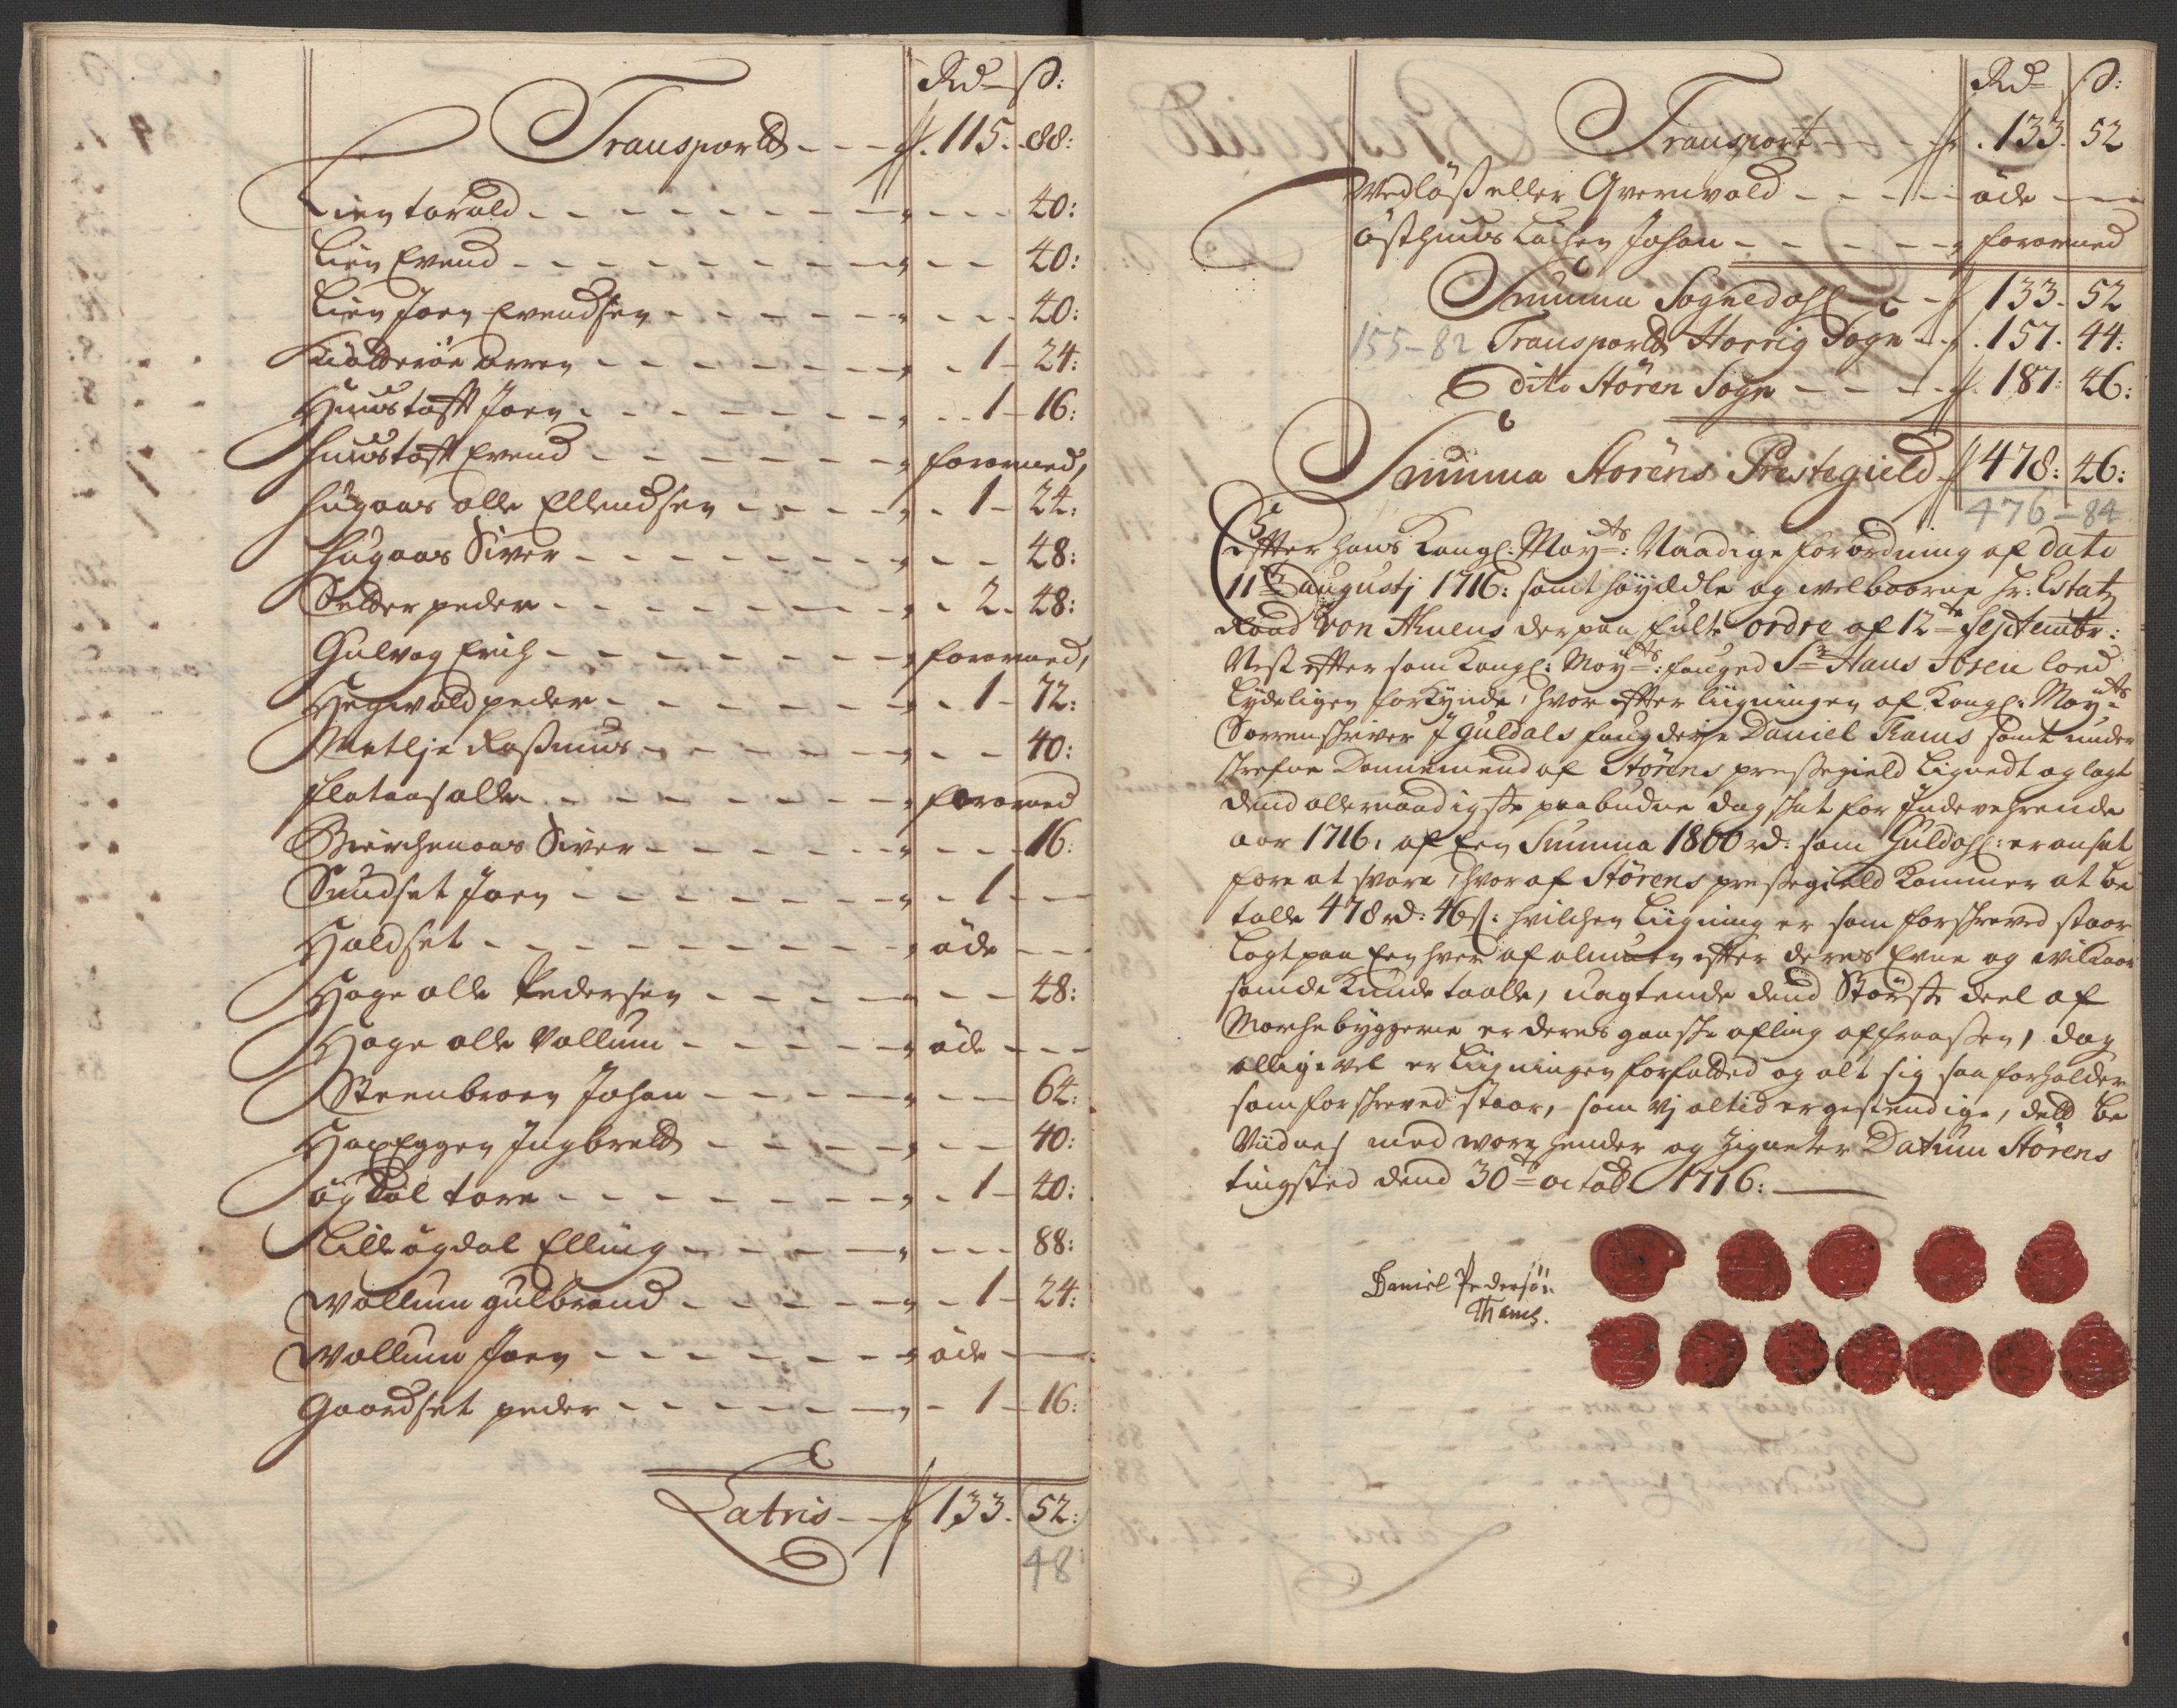 Rd– ß:
Transporteret – – – ſſ. 115. 88:
Lien Torald – – – – 40:
Lien Evend – – – – 40:
Lien Joen Evendsen – – – – 40:
Kiölderöe Arren – – – – 1 – 24:
Huustoft Joen – – – – 1 – 16:
Huustoft Evend – – – – forarmed,
Hugaas Olle Ellendsen – – – – 1 – 24:
Hugaas Siver – – – – 48:
Solder peder – – – – 2. 48:
Gulvog Erich – – – – forarmed,
Hegwold peder – – – – 1 – 72:
Metlje Rasmus – – – – 40:
Flotaas Olle – – – – forarmed
Bierchenaas Siver – – – – 16:
Sundset Joen – – – – 1 – –
Holdset – – – – öde – –
Hage Olle Pedersen – – – – 48:
Hage Olle Vollum – – – – öde – – –
Steenbroen Johan – – – – 64:
Haxeggen Ingbret – – – – 40:
Ögdal Tore – – – – 1 – 40:
Lille Ögdal Elling – – – – 88:
Wollum Gulbrand – – – – 1 – 24:
Wollum Joen – – – – öde –
Gaardset peder – – – – 1 – 16:
Latris – – ſſ 133. 52:
48
Rd– ß:
Transport – – ſſ. 133. 52
Wedlöß eller Qvernvold – – – – öde – –
Östhuus Löchen Johan – – – – forarmed
Summa Sognedahl – – ſſ 133. 52
155–82 Transporteret Horrig Sogn – ſſ. 157. 44:
dito Stören Sogn – – – – ſſ. 187: 46:
Summa Störens Prestegield ſſ 478: 46:
476–84
Effter Hans Kongl. May:ts: Naadige forordning af dato
11te Augustj 1716: samt Höyædle og welbaarne Hr: Estatz
Raad Von Ahnens derpaa fulte ordre af 12te Septembr:
Nest effter som Kongl: May:ts: fauged Sr Hans Ibsen loed
lydeligen forkynde, hvor effter ligningen af Kongl: May:ts
Sorrenskriver J Guldals faugderie Daniel Thams samt under
skrefne Dannemend af Störens prestegield lignedt og lagt
dend allernaadigste paabudne dagskat for Indeverende
aar 1716: af Een Summa 1800 rd: som Guldahl: er ansat
fore at svare, hvoraf Störens prestegield kommer at be
talle 478 rd: 46 ß: hvilchen Ligning er som forskreved staar
lagt paa Een hver af almuen effter deres Evne og wilkaar
som de kunde taalle, uagtende dend Störste deel af
Marchebyggerne er deres ganske afling affraassen, dog
alligevel er Ligningen forfatted og alt sig saa forholder
som forskreved staar, som vj altid er gestendige, dett be
Vidnes med worre hender og Zigneter Datum Störens
tingsted dend 30te octobr 1716:
Daniel Pedersøn
Thams.